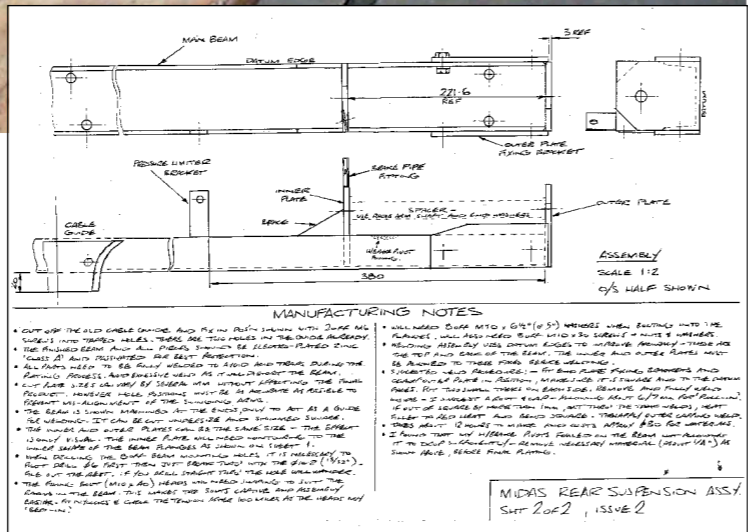 MAIN BEAM
DATUM EDGE
3 REF
221.6
REF
DATUM
OUTER PLATE
FIXING BRACKET
PRESSURE LIMITER
BRACKET
BRAKE PIPE
FITTING
INNER
PLATE
SPACER -
USE RADIUS ARM SHAFT AND END WASHERS
OUTER PLATE
BRACE
CABLE
GUIDE
380
ASSEMBLY
SCALE 1:2
O/S HALF SHOWN
MANUFACTURING NOTES
• CUT OFF THE OLD CABLE GUIDE AND FIX IN POS'N SHOWN WITH 2 OFF M6
SCREWS INTO TAPPED HOLES. THERE ARE TWO HOLES IN THE GUIDE ALREADY.
• THE FINISHED BEAM AND ALL PIECES SHOULD BE ELECTRO-PLATED ZINC
'CLASS A' AND PASSIVATED FOR BEST PROTECTION.
• ALL PARTS NEED TO BE FULLY WELDED TO AVOID ACID TRAPS DURING THE
PLATING PROCESS. AVOID EXCESSIVE WELD AS IT WILL DISTORT THE BEAM.
• CUT PLATE SIZES CAN VARY BY SEVERAL MM WITHOUT AFFECTING THE FINAL
PRODUCT. HOWEVER HOLE POSITIONS MUST BE AS ACCURATE AS POSSIBLE TO
PREVENT MISALIGNMENT OF THE SWINGING ARMS.
• THE BEAM IS SHOWN MACHINED AT THE ENDS ONLY TO ACT AS A GUIDE
FOR WELDING. IT CAN BE CUT UNDERSIZE AND SHIMMED SQUARE.
• THE INNER AND OUTER PLATES CAN BE THE SAME SIZE - THE EFFECT
IS ONLY VISUAL. THE INNER PLATE WILL NEED CONTOURING TO THE
INNER SHAPE OF THE BEAM FLANGES AS SHOWN ON SHEET 1.
• WHEN DRILLING THE BEAM MOUNTING HOLES IT IS NECESSARY TO
PILOT DRILL Ø6 FIRST THEN JUST BREAK THRU' WITH THE
FILE OUT THE REST. IF YOU DRILL STRAIGHT THRU' THE HOLE WILL WANDER.
• THE FIXING BOLT (M10 x 40) HEADS WILL NEED SHAPING TO SUIT THE
RADIUS IN THE BEAM. THIS MAKES THE BOLTS CAPTIVE AND ASSEMBLY
EASIER. FIT NYLOCKS & CHECK THE TENSION AFTER 100 MILES AS THE HEADS MAY
'BED-IN'.
• WILL NEED 8 OFF M10 x WASHERS WHEN BOLTING INTO THE
FLANGES, WILL ALSO NEED 8 OFF M10 x 30 SCREWS + NUTS & WASHERS.
• WELDING ASSEMBLY USES DATUM EDGES TO IMPROVE ACCURACY - THESE ARE
THE TOP AND BACK OF THE BEAM. THE INNER AND OUTER PLATES MUST
BE ALIGNED TO THESE FACES BEFORE WELDING.
• SUGGESTED WELD PROCEDURE: - FIT END PLATE FIXING BRACKETS AND
PLATE IN POSITION, MAKE SURE IT IS SQUARE AND TO THE DATUM
FACES. PUT TWO SMALL TACKS ON EACH SIDE. REMOVE AND FULLY WELD
ALLOWING ABOUT
IF OUT OF SQUARE BY MORE THAN 1MM, HEAT
FILLET TO RED HEAT AND BEND SQUARE.
• TAKES ABOUT 12 HOURS TO MAKE AND COSTS ABOUT £30 FOR MATERIALS.
• I FOUND THAT MY PIVOTS FOULED ON THE BEAM NOT ALLOWING
IT TO DROP SUFFICIENTLY - REMOVE NECESSARY MATERIAL AS
SHOWN ABOVE, BEFORE FINAL PLATING.
MIDAS REAR SUSPENSION ASSY.
SHT 2 OF 2, ISSUE 2